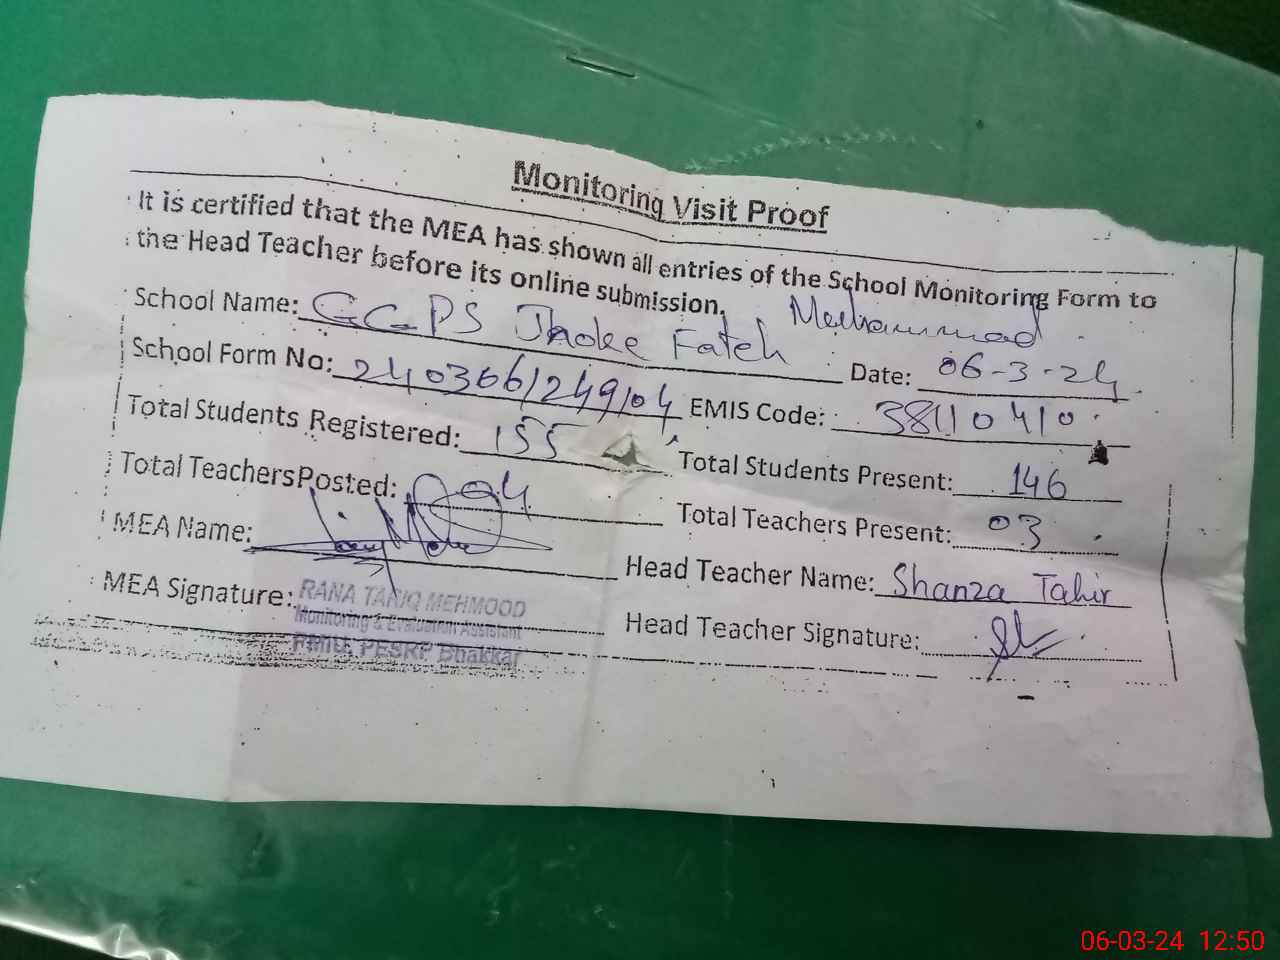 Monitoring Visit Proof
It is certified that the MEA has shown all entries of the School Monitoring Form to
the Head Teacher before its online submission.
School Name: GGPS Jhoke Fateh Muhammad Date: 06-3-24
School Form No: 240306/249/04 EMIS Code: 38110410
Total Students Registered: 155 Total Students Present: 146
Total Teachers Posted: 04 Total Teachers Present: 03
MEA Name: Head Teacher Name: Shanza Tahir
MEA Signature: Head Teacher Signature:
RANA TARIQ MEHMOOD
Monitoring & Evaluation Assistant
PMIU, PESRP Bhakkar
06-03-24 12:50